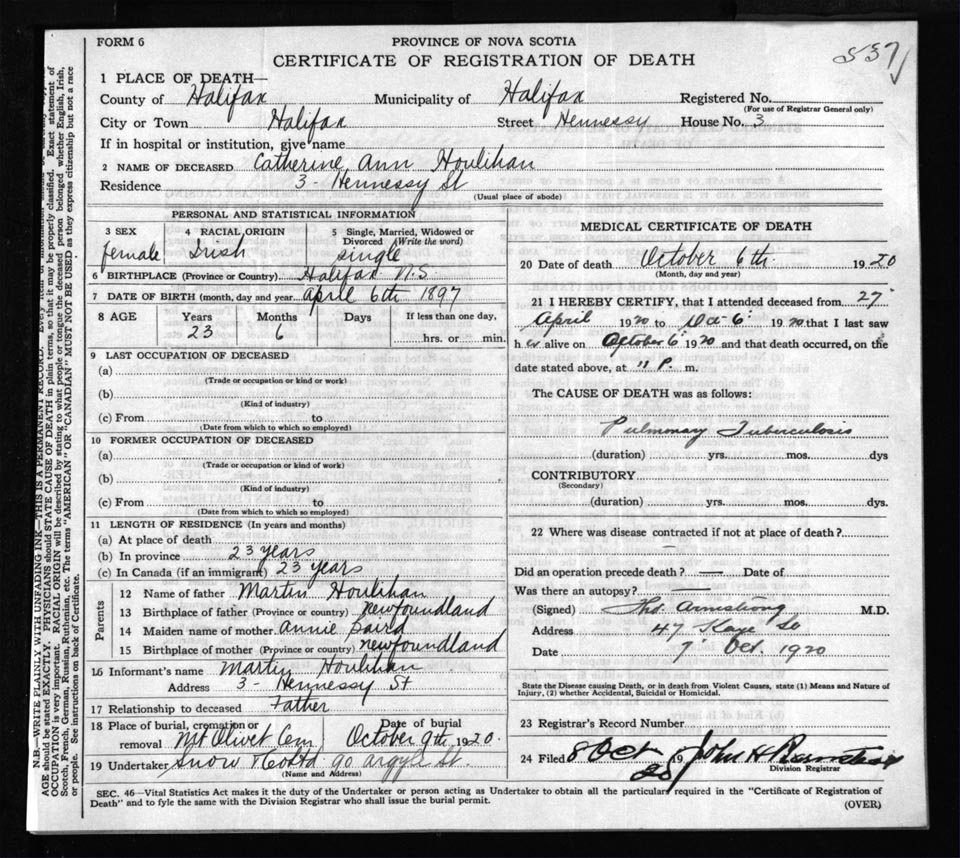 FORM 6
PROVINCE OF NOVA SCOTIA
CERTIFICATE OF REGISTRATION OF DEATH
537
1 PLACE OF DEATH—
County of Halifax Municipality of Halifax Registered No.
(For use of Registrar General only)
City or Town Halifax Street Hennessy House No. 3
If in hospital or institution, give name
2 NAME OF DECEASED Catherine Ann Houlihan
Residence 3 - Hennessy St
(Usual place of abode)
PERSONAL AND STATISTICAL INFORMATION
3 SEX 4 RACIAL ORIGIN 5 Single, Married, Widowed or Divorced (Write the word)
female Irish single
6 BIRTHPLACE (Province or Country) Halifax N.S
7 DATE OF BIRTH (month, day and year April 6th 1897
8 AGE Years Months Days If less than one day,
23 6 hrs. or min.
9 LAST OCCUPATION OF DECEASED
(a)
(Trade or occupation or kind or work)
(b)
(Kind of industry)
(c) From to
(Date from which to which so employed)
10 FORMER OCCUPATION OF DECEASED
(a)
(Trade or occupation or kind of work)
(b)
(Kind of industry)
(c) From to
(Date from which to which so employed)
11 LENGTH OF RESIDENCE (In years and months)
(a) At place of death
(b) In province 23 years
(c) In Canada (if an immigrant) 23 years
Parents
12 Name of father Martin Houlihan
13 Birthplace of father (Province or country) newfoundland
14 Maiden name of mother Annie Baird
15 Birthplace of mother (Province or country) newfoundland
16 Informant's name Martin Houlihan
Address 3 - Hennessy St
17 Relationship to deceased Father
18 Place of burial, cremation or removal Mt Olivet Cem Date of burial October 9th 1920.
19 Undertaker Snow & Co Ltd 90 Argyle St.
(Name and Address)
MEDICAL CERTIFICATE OF DEATH
20 Date of death October 6th 1920
(Month, day and year)
21 I HEREBY CERTIFY, that I attended deceased from 27
April 1920 to Oct 6 1920 that I last saw
her alive on October 6 1920 and that death occurred, on the
date stated above, at 11 P. m.
The CAUSE OF DEATH was as follows:
Pulmonary Tuberculosis
(duration) yrs. mos. dys
CONTRIBUTORY
(Secondary)
(duration) yrs. mos. dys.
22 Where was disease contracted if not at place of death?
—
Did an operation precede death? — Date of
Was there an autopsy? —
(Signed) Armstrong M.D.
Address 47 Kaye St
Date 7 Oct. 1920
State the Disease causing Death, or in death from Violent Causes, state (1) Means and Nature of
Injury, (2) whether Accidental, Suicidal or Homicidal.
23 Registrar's Record Number
24 Filed 8 Oct 1920 John H
Division Registrar
SEC. 46—Vital Statistics Act makes it the duty of the Undertaker or person acting as Undertaker to obtain all the particulars required in the "Certificate of Registration of
Death" and to fyle the same with the Division Registrar who shall issue the burial permit.
(OVER)
N.B.—WRITE PLAINLY WITH UNFADING INK—THIS IS A PERMANENT RECORD. Every
AGE should be stated EXACTLY. PHYSICIANS should STATE CAUSE OF DEATH in plain terms, so that it may be properly classified. Exact statement of
OCCUPATION is very important. RACIAL ORIGIN will be described by stating to what people or tongue the deceased person belonged, whether English, Irish,
Scotch, French, German, Russian, Ruthenian, etc. The terms "AMERICAN" OR "CANADIAN" MUST NOT BE USED as they express citizenship but not a race
or people. See instructions on back of Certificate.